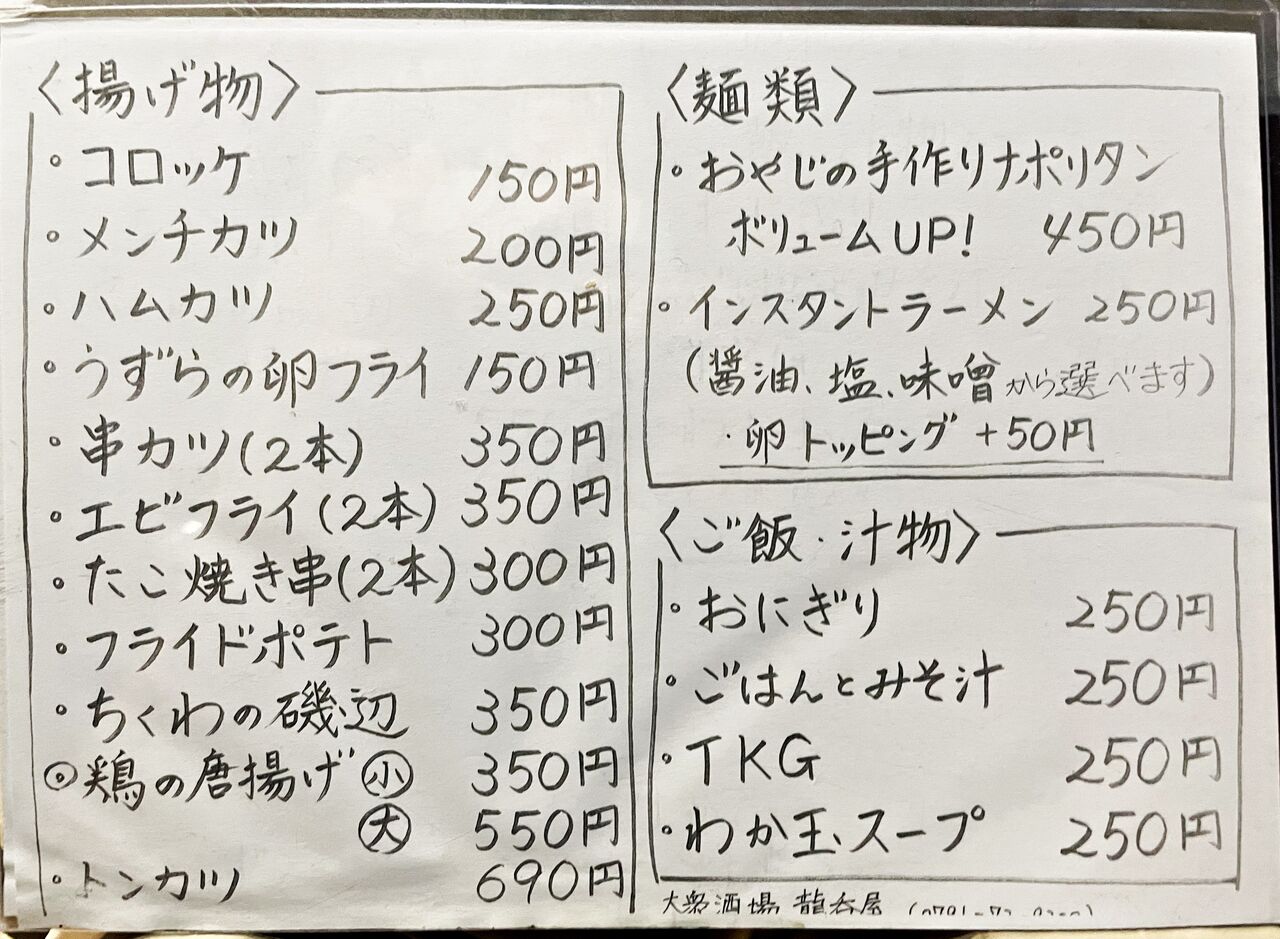 〈揚げ物〉
・コロッケ 150円
・メンチカツ 200円
・ハムカツ 250円
・うずらの卵フライ 150円
・串カツ(2本) 350円
・エビフライ(2本) 350円
・たこ焼き串(2本) 300円
・フライドポテト 300円
・ちくわの磯辺 350円
◎鶏の唐揚げ ㊙小 350円
大 550円
・トンカツ 690円
〈麺類〉
・おやじの手作りナポリタン
ボリュームUP! 450円
・インスタントラーメン 250円
(醤油、塩、味噌から選べます)
・卵トッピング+50円
〈ご飯・汁物〉
・おにぎり 250円
・ごはんとみそ汁 250円
・TKG 250円
・わか玉スープ 250円
大衆酒場 龍呑屋